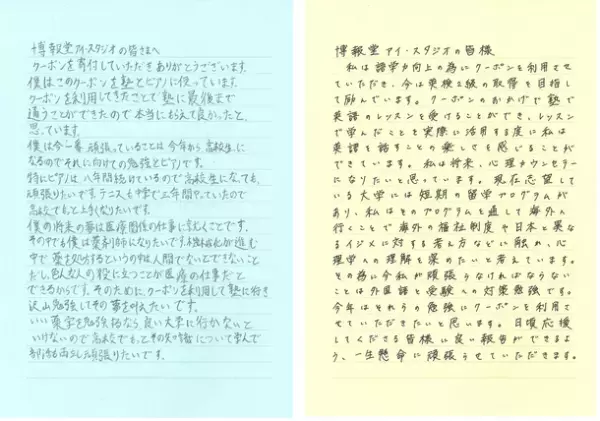 博報堂アイ・スタジオの皆さまへ
クーポンを寄付していただきありがとうございます。
僕はこのクーポンを塾とピアノに使っています。
クーポンを利用してきたことで塾に最後まで
通うことができたので本当にもらえて良かったと
思っています。
僕は今一番頑張っていることは今年から高校生に
なるのでそれに向けての勉強とピアノです。
特にピアノは八年間続けているので高校生になっても、
頑張りたいです。テニスも中学で三年間やっていたので
高校でもっと上手くなりたいです。
僕の将来の夢は医療関係の仕事に就くことです。
その中でも僕は薬剤師になりたいです。機械化が進む
中で薬を処方するというのは人間でないとできないこと
だし色んな人の役に立つことが医療の仕事だと
できるからです。そのためにクーポンを利用して塾に行き
沢山勉強してその夢を叶えたいです。
薬学を勉強するなら良い大学に行かないと
いけないので高校でもっとその知識について学んで
部活も両立し頑張りたいです。
博報堂アイ・スタジオの皆様
私は語学力向上の為にクーポンを利用させ
ていただき、今は英検2級の取得を目指し
て励んでいます。クーポンのおかげで塾で
英語のレッスンを受けることができ、レッスン
で学んだことを実際に活用する度に私は
英語を話すことの楽しさを感じることが
できています。私は将来、心理カウンセラー
になりたいと思っています。現在志望して
いる大学には短期の留学プログラムが
あり、私はそのプログラムを通して海外へ
行くことで海外の福祉制度や日本と異な
るイジメに対する考え方などに触れ、心
理学への理解を深めたいと考えています。
その為に今私が頑張らなければならない
ことは外国語と受験への対策勉強です。
今年はそれらの勉強にクーポンを利用さ
せていただきたいと思います。日頃応援
してくださる皆様に良い報告ができるよ
う、一生懸命に頑張らせていただきます。